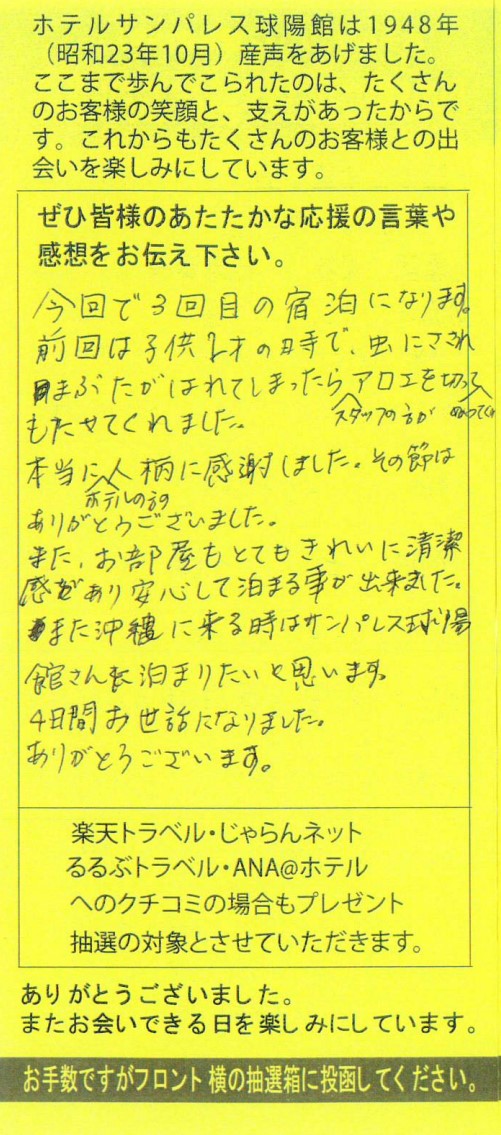 ホテルサンパレス球陽館は1948年
（昭和23年10月）産声をあげました。
ここまで歩んでこられたのは、たくさん
のお客様の笑顔と、支えがあったからで
す。これからもたくさんのお客様との出
会いを楽しみにしています。
ぜひ皆様のあたたかな応援の言葉や
感想をお伝え下さい。
今回で3回目の宿泊になります。
前回は子供2才の時で、虫にさされ
まぶたがはれてしまったらアロエを切って
スタッフの方が ぬってくれ
もたせてくれました。
本当に人柄に感謝しました。その節は
ホテルの方の
ありがとうございました。
また、お部屋もとてもきれいに清潔
感があり安心して泊まる事が出来ました。
また沖縄に来る時はサンパレス球陽
館さんに泊まりたいと思います。
4日間お世話になりました。
ありがとうございます。
楽天トラベル・じゃらんネット
るるぶトラベル・ANA@ホテル
へのクチコミの場合もプレゼント
抽選の対象とさせていただきます。
ありがとうございました。
またお会いできる日を楽しみにしています。
お手数ですがフロント横の抽選箱に投函してください。